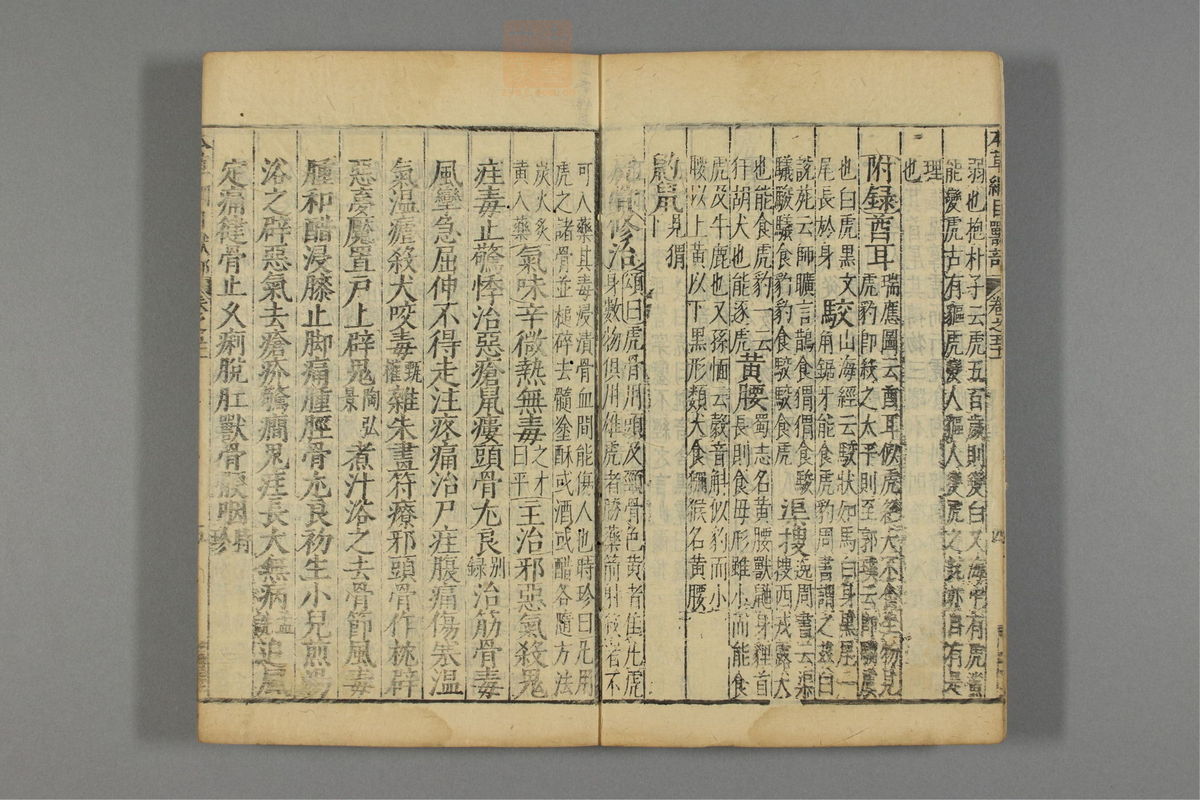 本草綱目獸部 卷之五十一
弱也抱朴子云虎五百歲則變白又海中有虎鯊
能變虎古有貙虎變人貙人變虎之說亦自有是
理
也
附録酋耳瑞應圖云酋耳似虎絶大不食生物見
虎豹即殺之太平則至郭璞云即騶虞
也白虎黑文
尾長於身 駮山海經云駮狀如馬白身黑尾一
角鋸牙能食虎豹周書謂之玆白
說苑云師曠言鵲食猬猬食駿
鸃駿鸃食豹豹食駮駮食虎 渠搜逸周書云渠
搜西戎露犬
也能食虎豹一云
行胡犬也能逐虎 黄腰蜀志名黄腰獸鼬身貍首
長則食母形雖小而能食
虎及牛鹿也又孫愐云㺉音斛似豹而小
腰以上黄以下黑形類犬食獼猴名黄腰
䶂鼠見猬
修治頌曰虎骨用頭及頸骨色黄者佳凡虎
身數物俱用雄虎者勝藥箭射殺者不
可入藥其毒浸漬骨血間能傷人也時珍曰凡用
虎之諸骨並槌碎去髓塗酥或酒或醋各隨方法
炭火炙
黄入藥 氣味辛微熱無毒之才
曰平 主治邪惡氣殺鬼
疰毒止驚悸治惡瘡鼠瘻頭骨尤良别
録 治筋骨毒
風攣急屈伸不得走注疼痛治尸疰腹痛傷寒温
氣温瘧殺犬咬毒甄
權 雜朱畫符療邪頭骨作枕辟
惡夢魘置戸上辟鬼陶弘
景 煮汁浴之去骨節風毒
腫和醋浸膝止脚痛腫脛骨尤良初生小兒煎湯
浴之辟惡氣去瘡疥驚癇鬼疰長大無病孟
詵 追風
定痛健骨止久痢脱肛獸骨哽咽時
珍